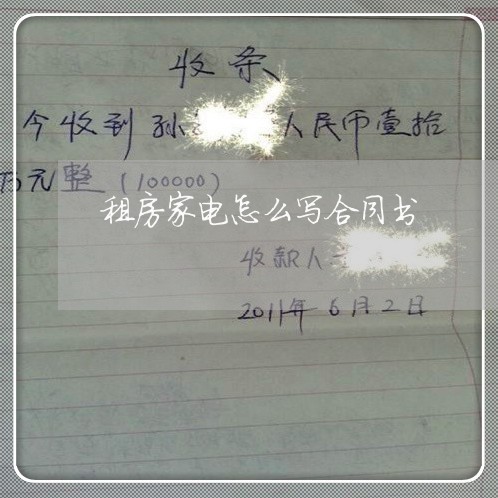 收条
今收到孙 人民币壹拾
万元整(100000)
租房家电怎么写合同书
收款人
2011年6月2日